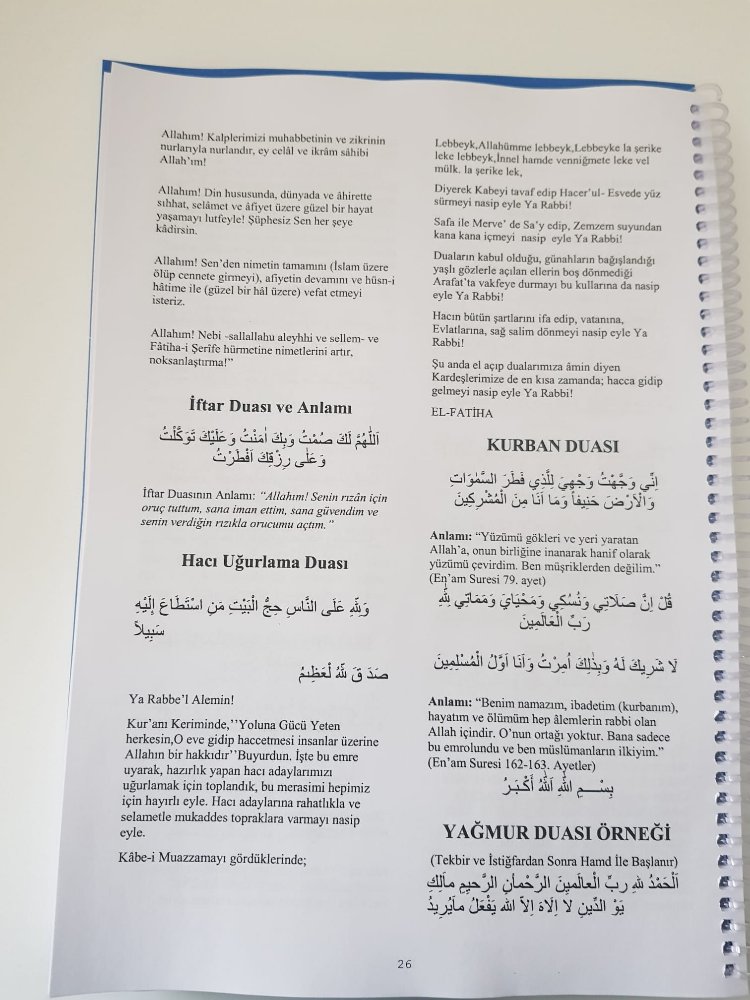 Allahım! Kalplerimizi muhabbetinin ve zikrinin
nurlarıyla nurlandır, ey celâl ve ikrâm sâhibi
Allah'ım!
Allahım! Din hususunda, dünyada ve âhirette
sıhhat, selâmet ve âfiyet üzere güzel bir hayat
yaşamayı lutfeyle! Şüphesiz Sen her şeye
kâdirsin.
Allahım! Sen'den nimetin tamamını (İslam üzere
ölüp cennete girmeyi), afiyetin devamını ve hüsn-i
hâtime ile (güzel bir hâl üzere) vefat etmeyi
isteriz.
Allahım! Nebi -sallallahu aleyhhi ve sellem- ve
Fâtiha-i Şerîfe hürmetine nimetlerini artır,
noksanlaştırma!"
İftar Duası ve Anlamı
اَللّٰهُمَّ لَكَ صُمْتُ وَبِكَ اٰمَنْتُ وَعَلَيْكَ تَوَكَّلْتُ
وَعَلٰى رِزْقِكَ اَفْطَرْتُ
İftar Duasının Anlamı: "Allahım! Senin rızân için
oruç tuttum, sana iman ettim, sana güvendim ve
senin verdiğin rızıkla orucumu açtım."
Hacı Uğurlama Duası
وَلِلّٰهِ عَلَى النَّاسِ حِجُّ الْبَيْتِ مَنِ اسْتَطَاعَ إِلَيْهِ
سَبِيلاً
صَدَ قَ للّٰهُ لْعَظِيمُ
Ya Rabbe'l Alemin!
Kur'anı Keriminde,''Yoluna Gücü Yeten
herkesin,O eve gidip haccetmesi insanlar üzerine
Allahın bir hakkıdır''Buyurdun. İşte bu emre
uyarak, hazırlık yapan hacı adaylarımızı
uğurlamak için toplandık, bu merasimi hepimiz
için hayırlı eyle. Hacı adaylarına rahatlıkla ve
selametle mukaddes topraklara varmayı nasip
eyle.
Kâbe-i Muazzamayı gördüklerinde;
Lebbeyk,Allahümme lebbeyk,Lebbeyke la şerike
leke lebbeyk,İnnel hamde venniğmete leke vel
mülk. la şerike lek,
Diyerek Kabeyi tavaf edip Hacer'ul- Esvede yüz
sürmeyi nasip eyle Ya Rabbi!
Safa ile Merve' de Sa'y edip, Zemzem suyundan
kana kana içmeyi nasip eyle Ya Rabbi!
Duaların kabul olduğu, günahların bağışlandığı
yaşlı gözlerle açılan ellerin boş dönmediği
Arafat'ta vakfeye durmayı bu kullarına da nasip
eyle Ya Rabbi!
Hacın bütün şartlarını ifa edip, vatanına,
Evlatlarına, sağ salim dönmeyi nasip eyle Ya
Rabbi!
Şu anda el açıp dualarımıza âmin diyen
Kardeşlerimize de en kısa zamanda; hacca gidip
gelmeyi nasip eyle Ya Rabbi!
EL-FATİHA
KURBAN DUASI
اِنّٖي وَجَّهْتُ وَجْهِيَ لِلَّذِي فَطَرَ السَّمٰوَاتِ
وَالْاَرْضَ حَنِيفاً وَمَا اَنَا مِنَ الْمُشْرِكِينَ
Anlamı: "Yüzümü gökleri ve yeri yaratan
Allah'a, onun birliğine inanarak hanif olarak
yüzümü çevirdim. Ben müşriklerden değilim."
(En'am Suresi 79. ayet)
قُلْ اِنَّ صَلَاتِي وَنُسُكِي وَمَحْيَايَ وَمَمَاتِي لِلّٰهِ
رَبِّ الْعَالَمِينَ
لَا شَرِيكَ لَهُ وَبِذٰلِكَ اُمِرْتُ وَاَنَا اَوَّلُ الْمُسْلِمِينَ
Anlamı: "Benim namazım, ibadetim (kurbanım),
hayatım ve ölümüm hep âlemlerin rabbi olan
Allah içindir. O'nun ortağı yoktur. Bana sadece
bu emrolundu ve ben müslümanların ilkiyim."
(En'am Suresi 162-163. Ayetler)
بِسْــمِ اللّٰهِ اَللّٰهُ أَكْـبَـرُ
YAĞMUR DUASI ÖRNEĞİ
(Tekbir ve İstiğfardan Sonra Hamd İle Başlanır)
اَلْحَمْدُ للهِ رَبِّ الْعالَمينَ الرَّحْمٰنِ الرَّحيمِ مٰالِكِ
يَوْ الدِّينِ لا اِلاٰهَ اِلاَّ الله يَفْعَلُ مٰايُرِيدُ
26